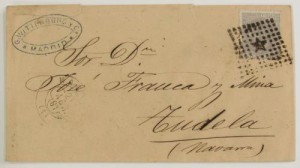 MADRID
Sor. Dn.
José Franca y Mina
Tudela
(Navarra)